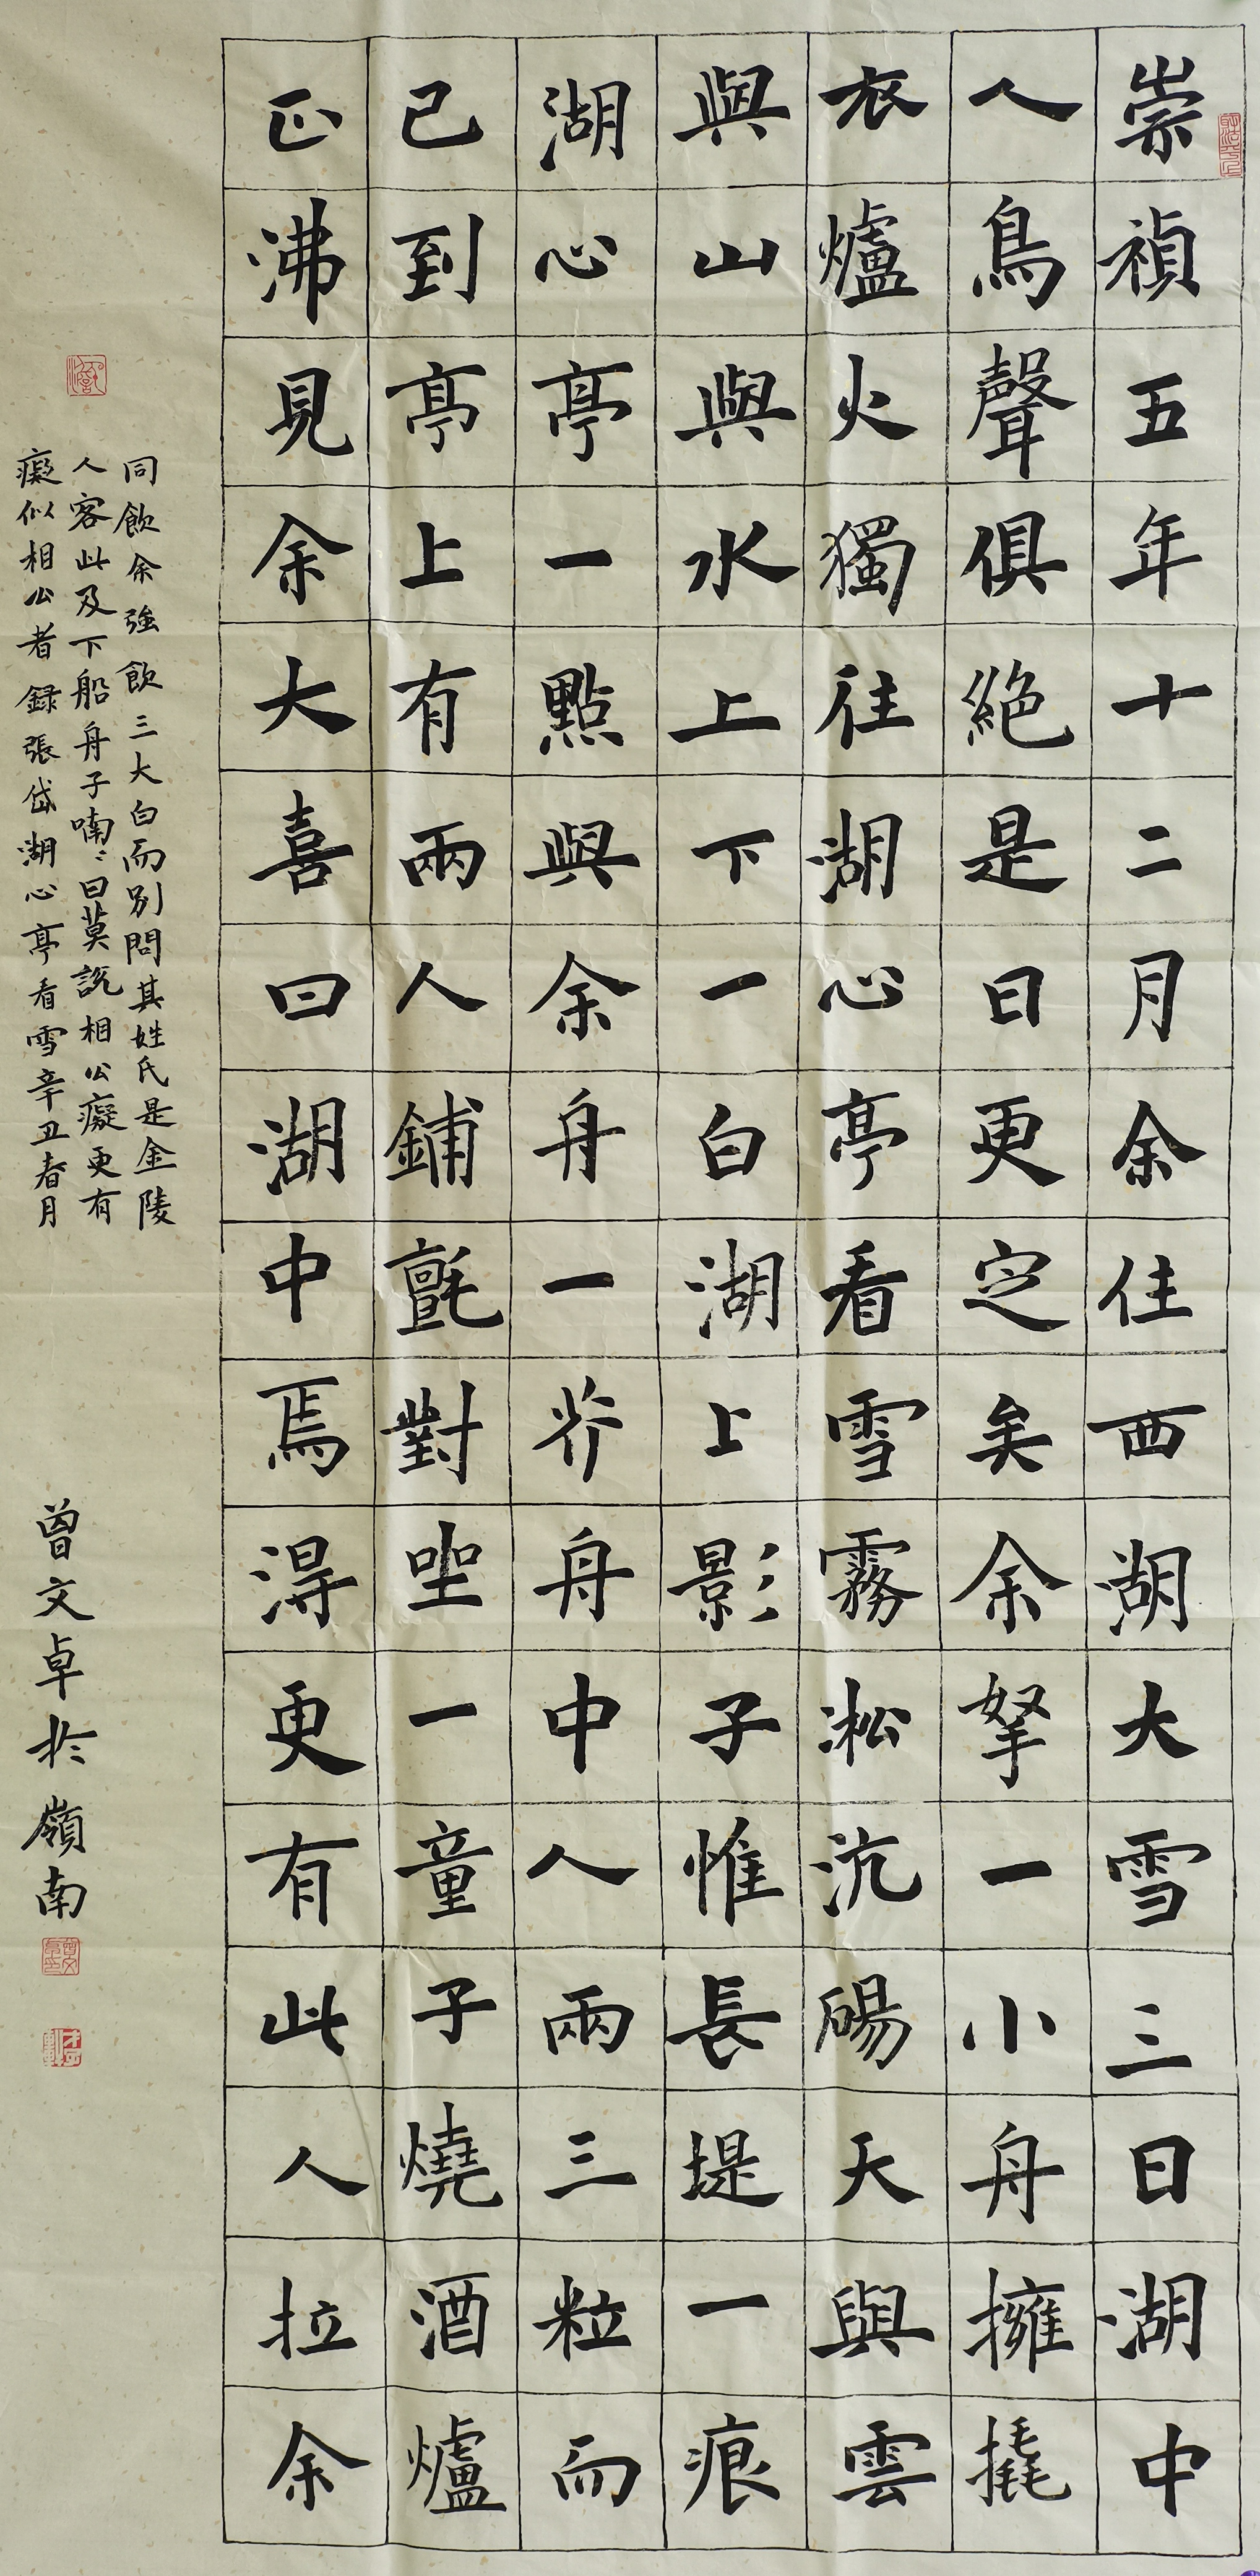 崇禎五年十二月余住西湖大雪三日湖中
人鳥聲俱絕是日更定矣余拏一小舟擁撬
衣爐火獨往湖心亭看雪霧凇沆碭天與雲
與山與水上下一白湖上影子惟長堤一痕
湖心亭一點與余舟一芥舟中人兩三粒而
已到亭上有兩人鋪氈對坐一童子燒酒爐
正沸見余大喜曰湖中焉得更有此人拉余
同飲余強飲三大白而別問其姓氏是金陵
人客此及下船舟子喃〻曰莫説相公癡更有
癡似相公者録張岱湖心亭看雪辛丑春月
曾文卓於嶺南